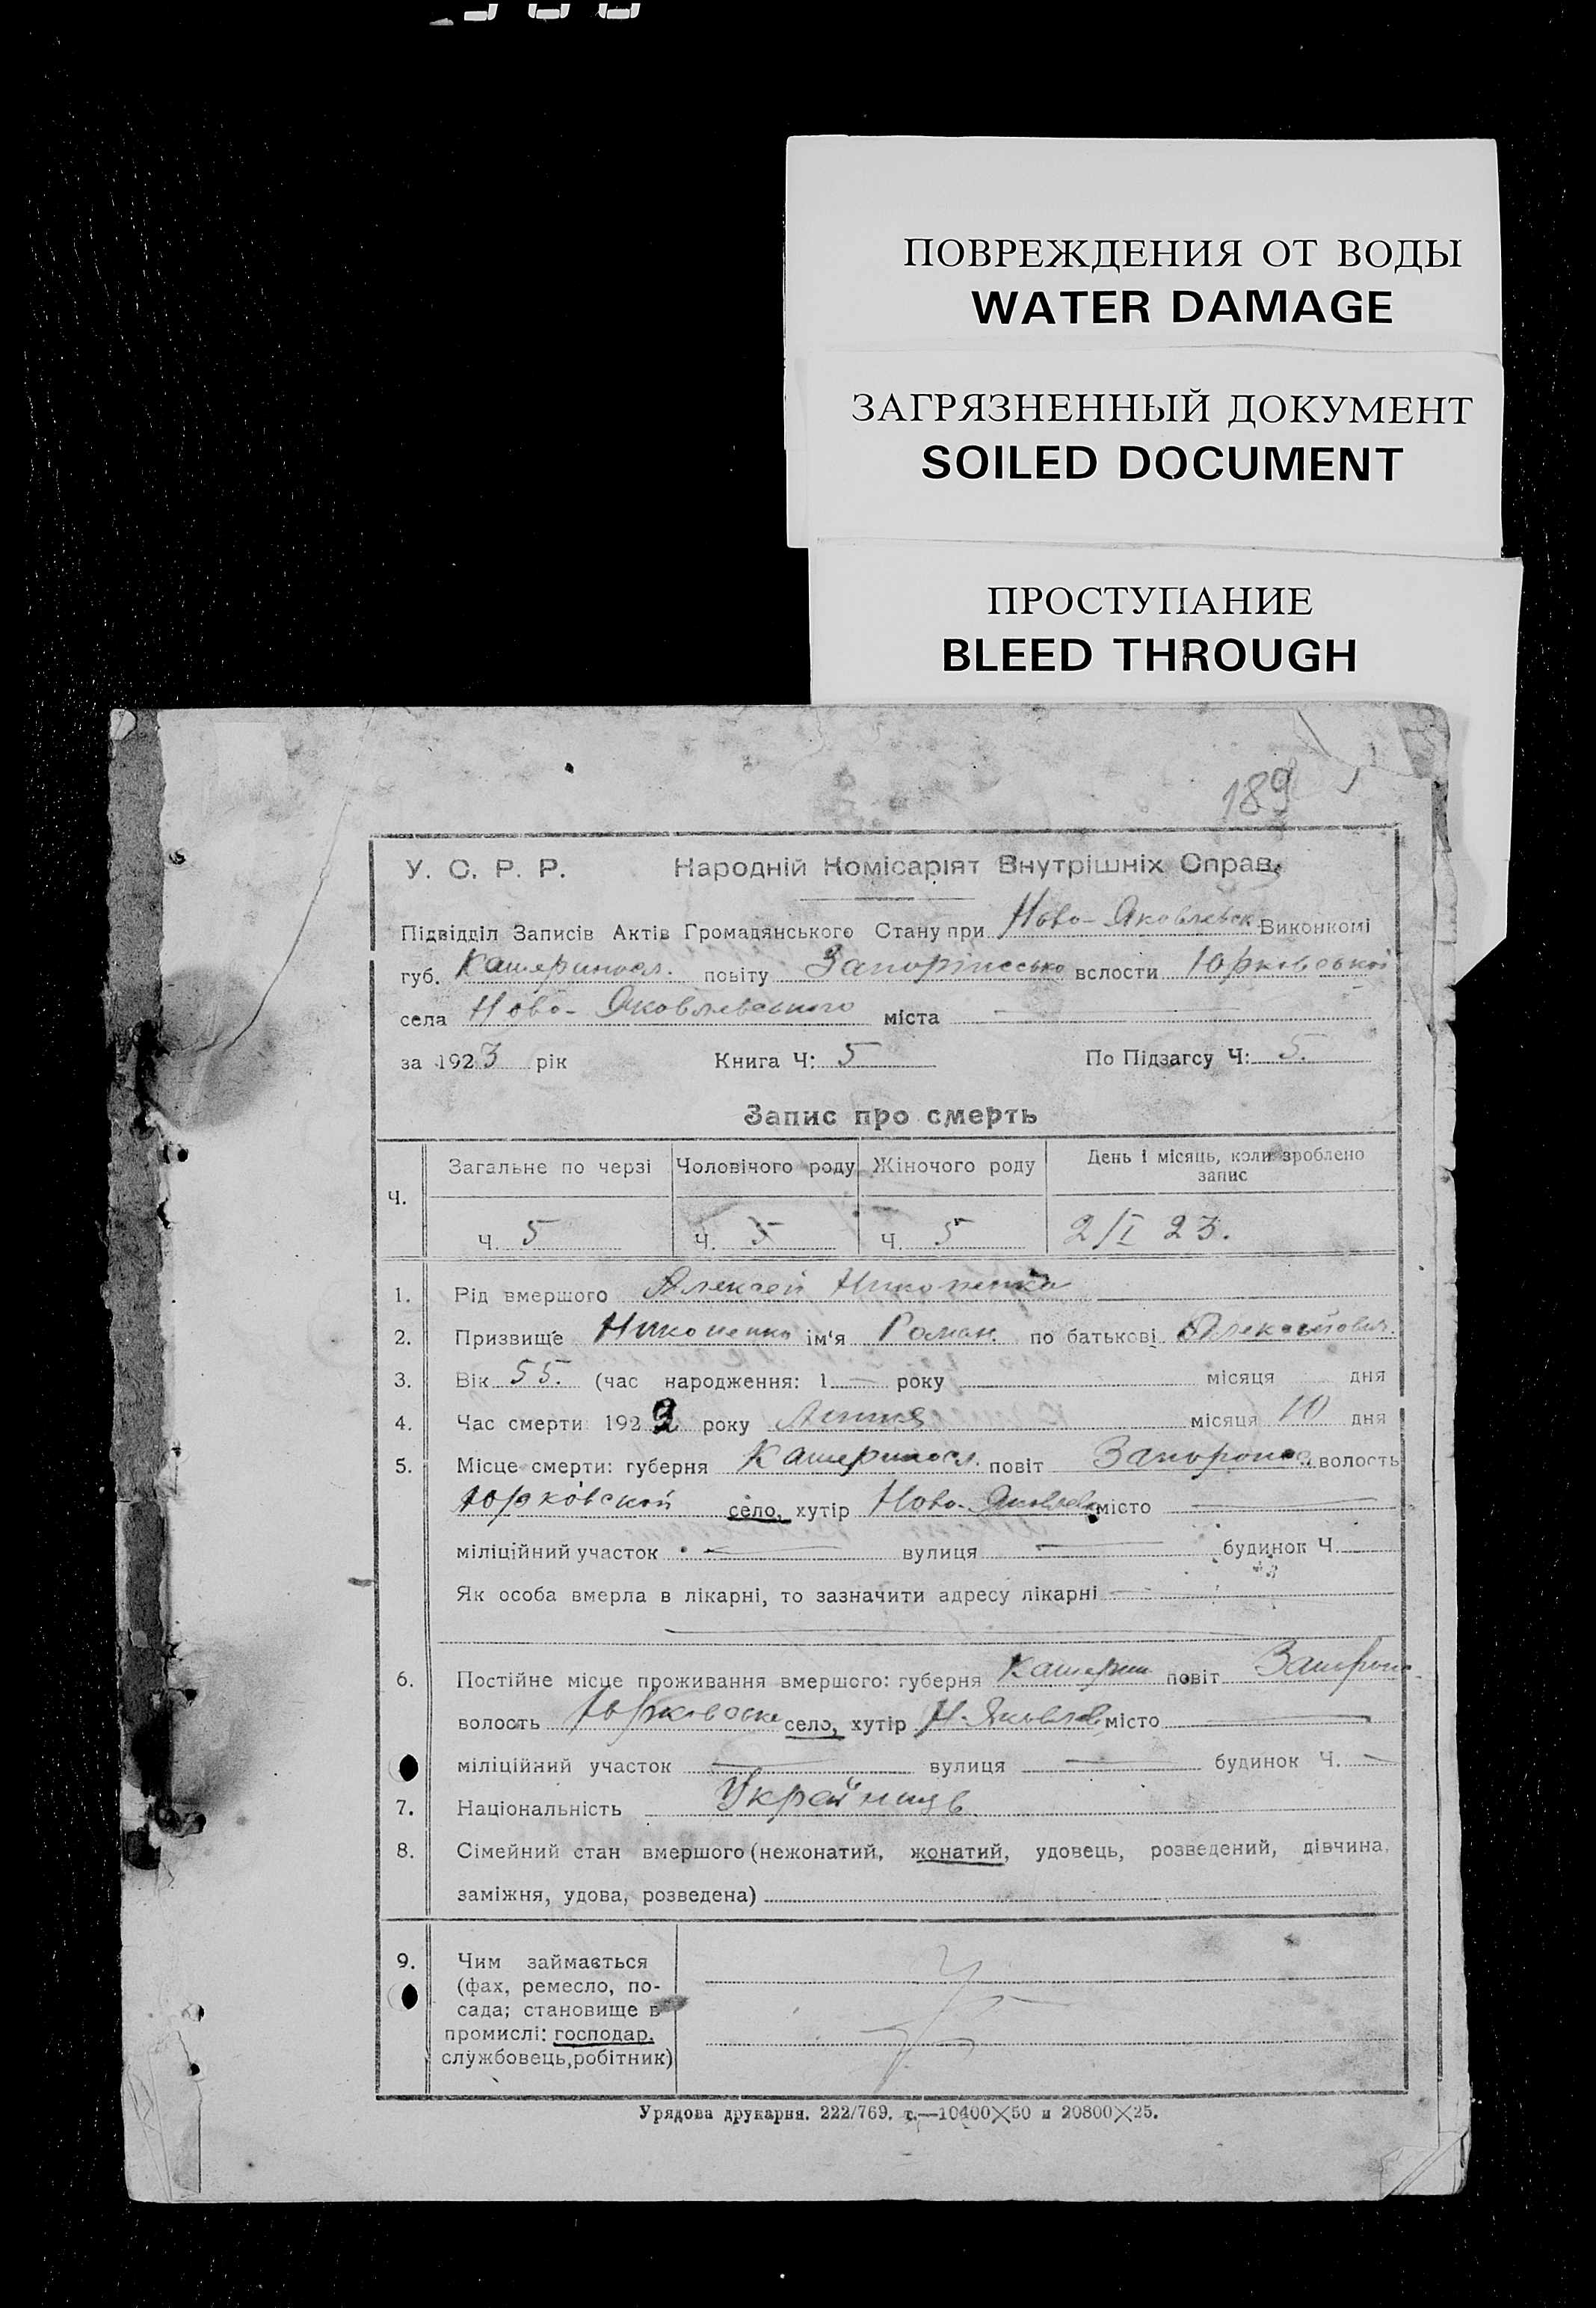 ПОВРЕЖДЕНИЯ ОТ ВОДЫ
WATER DAMAGE
ЗАГРЯЗНЕННЫЙ ДОКУМЕНТ
SOILED DOCUMENT
ПРОСТУПАНИЕ
BLEED THROUGH
189
У. С. Р. Р. Народній Комісаріят Внутрішніх Справ.
Підвідділ Записів Актів Громадянського Стану при Ново-Яковлевск Виконкомі
губ. Катеринос. повіту Запоріжсько волости Юрковської
села Ново-Яковлевського міста
за 1923 рік Книга Ч: 5 По Підзагсу Ч: 5.
Запис про смерть
Ч. Загальне по черзі Чоловічого роду Жіночого роду День і місяць, коли зроблено запис
Ч. 5 Ч. 5 Ч. 5 2/I 23.
1. Рід вмершого Алексей
2. Призвище ім'я Роман по батькові Алексейович.
3. Вік 55. (час народження: 1 року місяця дня
4. Час смерти 1922 року місяця 10 дня
5. Місце смерти: губерня Катеринос. повіт волость
Юрковской село, хутір Ново-Яковлев місто
міліційний участок вулиця будинок Ч.
Як особа вмерла в лікарні, то зазначити адресу лікарні
6. Постійне місце проживання вмершого: губерня Катерин повіт
волость село, хутір Н-Яковлев місто
міліційний участок вулиця будинок Ч.
7. Національність
8. Сімейний стан вмершого (нежонатий, жонатий, удовець, розведений, дівчина,
заміжня, удова, розведена)
9. Чим займається
(фах, ремесло, по-
сада; становище в
промислі: господар,
службовець, робітник)
Урядова друкарня. 222/769. т.—10400×50 и 20800×25.